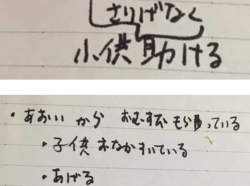 さりげなく
小供助ける
・あおい から おむすび もら助っている
・子供おなかすいている
・あげる